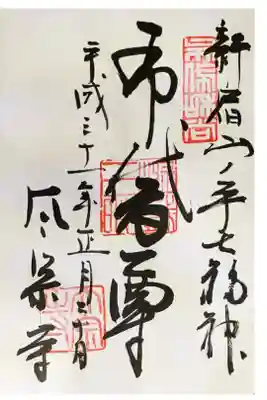 新宿山ノ手七福神
布袋尊
平成三十一年正月
太宗寺